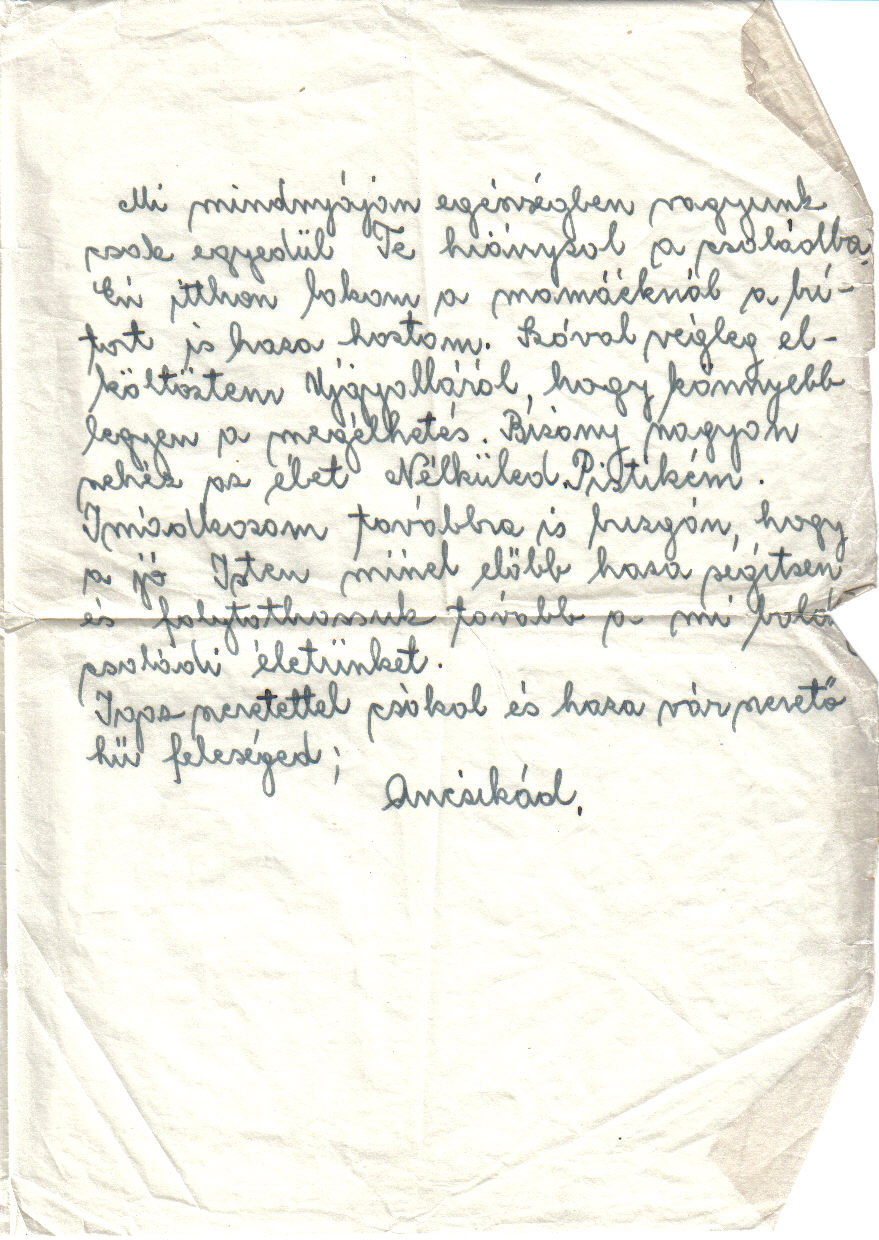 Mi mindnyájan egésségben vagyunk
csak egyedül Te hiányzol a családba.
Én itthon lakom a mamáéknál a bú-
tort is haza hoztam. Szóval végleg el-
költöztem Ujgyalláról, hogy könnyebb
legyen a megélhetés. Bizony nagyon
nehéz az élet Nélküled Pistikém.
Imádkozom továbbra is buzgón, hogy
a jó Isten minél előbb haza ségitsen
és folytathassuk tovább a mi
családi életünket.
Igaz szeretettel csókol és haza vár szerető
hű feleséged;
Ancsikád.